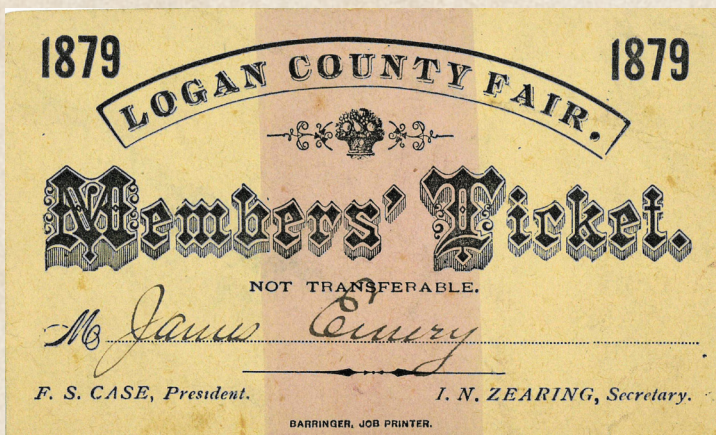 1879 1879
LOGAN COUNTY FAIR.
Members' Ticket.
NOT TRANSFERABLE.
M James Emery
F. S. CASE, President. I. N. ZEARING, Secretary.
BARRINGER, JOB PRINTER.